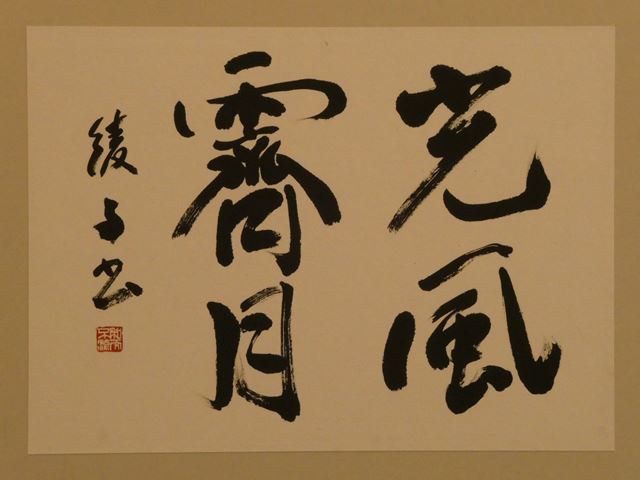 光風
霽月
綾子書